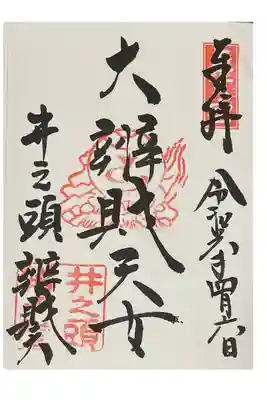 奉拝
令和六年四月六日
大辨財天女
井之頭辨財天
井之頭